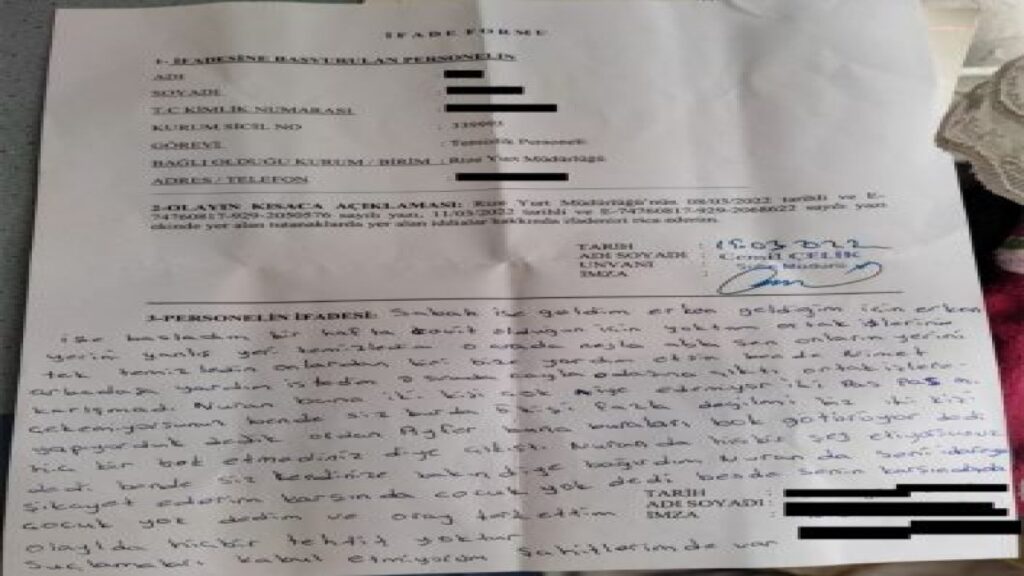 İFADE FORMU
1- İFADESİNE BAŞVURULAN PERSONELİN
ADI :
SOYADI :
T.C KİMLİK NUMARASI :
KURUM SİCİL NO :
GÖREVİ : Temizlik Personeli
BAĞLI OLDUĞU KURUM / BİRİM : Rize Yurt Müdürlüğü
ADRES / TELEFON :
2-OLAYIN KISACA AÇIKLAMASI: Rize Yurt Müdürlüğü'nün 08/03/2022 tarihli ve E-
74760817-929-2050576 sayılı yazı, 11/03/2022 tarihli ve E-74760817-929-2068622 sayılı yazı
ekinde yer alan tutanaklarda yer alan iddialar hakkında ifadenizi rica ederim.
TARİH : 15.03.2022
ADI SOYADI : Cemil ÇELİK
UNVANI : Müdürü
İMZA :
3-PERSONELİN İFADESİ: Sabah işe geldim erken geldiğim için erken
işe başladım bir hafta covit olduğum için yoktum ortak işlerine
yerin yanlış yeri temizledin o arada abla sen onların yerini
tek temizledin onlardan biri bize yardım etsin bende Nimet
arkadaşa yardım istedim o sırada odasına çıktı ortak işlere
karışmadı. Nuran bana iki kişi çok niye edemiyor iki pas pas ı
çekemiyorsunuz bende siz burda kişi fazla değilmi biz iki kişi
yapıyorduk dedik ordan Ayfer bana buraları bok götürüyor dedi
hiç bir bok etmediniz diye çıkıştı. Nuranda hiçbir şey etmiyosunuz
dedi bende siz kendinize bakın diye bağırdım Nuran da seni idareye
şikayet ederim karşında çocuk yok dedi bende senin karşındada
çocuk yok dedim ve oray terkettim
olayda hiçbir tehdit yoktur
suçlamaları kabul etmiyorum şahitlerimde var
TARİH :
ADI SOYADI :
İMZA :